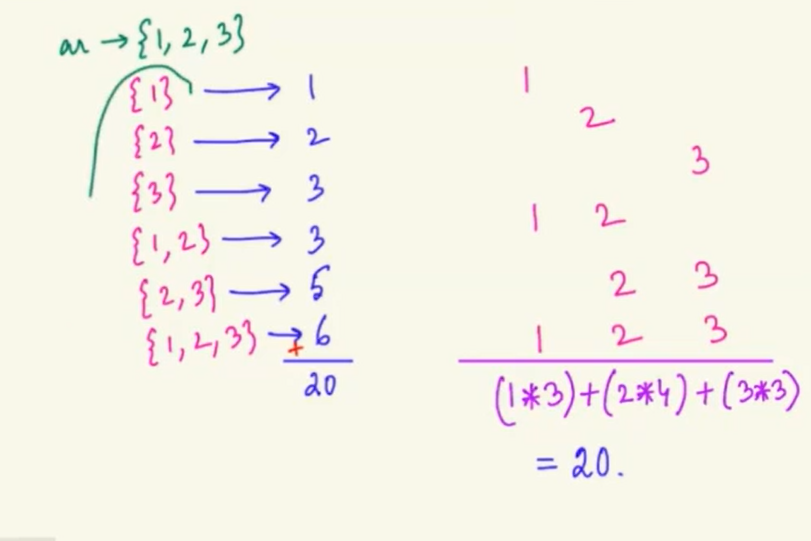 ar → {1, 2, 3}
{1} → 1
{2} → 2
{3} → 3
{1, 2} → 3
{2, 3} → 5
{1, 2, 3} → 6
+
20
1
2
3
1 2
2 3
1 2 3
(1*3)+(2*4)+(3*3)
= 20.